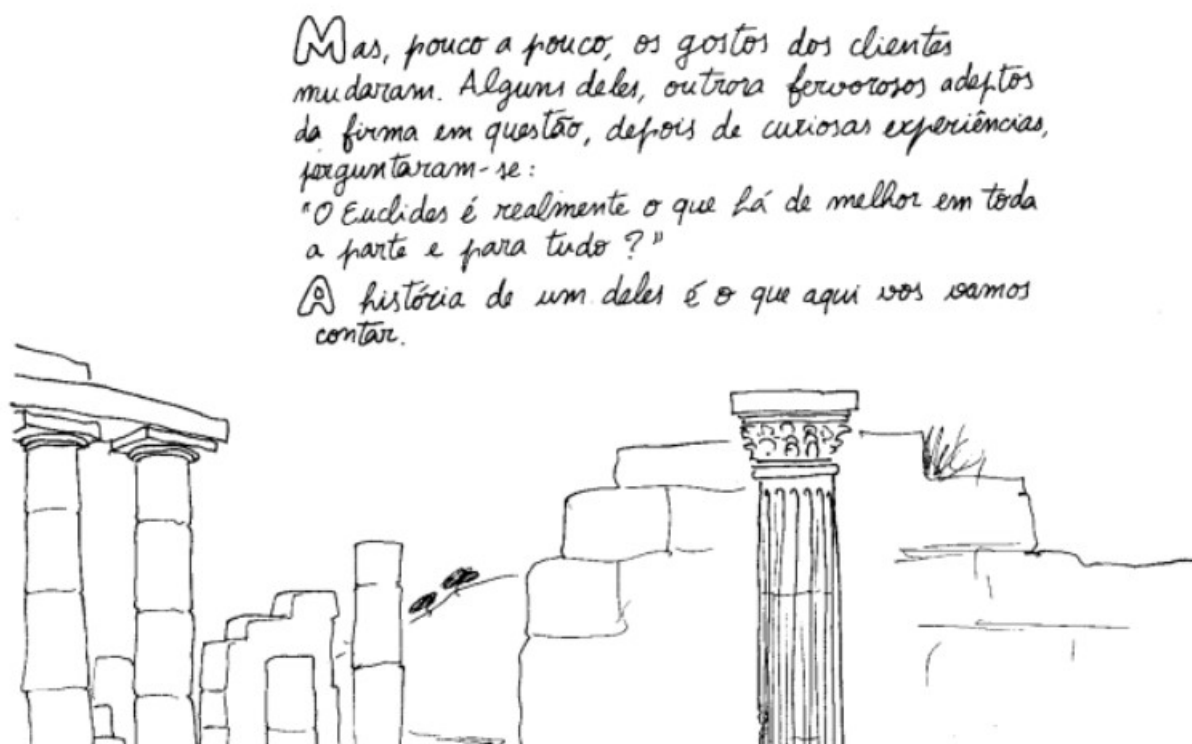 Mas, pouco a pouco, os gostos dos clientes
mudaram. Alguns deles, outrora fervorosos adeptos
da firma em questão, depois de curiosas experiências,
perguntaram-se:
"O Euclides é realmente o que há de melhor em toda
a parte e para tudo?"
A história de um deles é o que aqui vos vamos
contar.